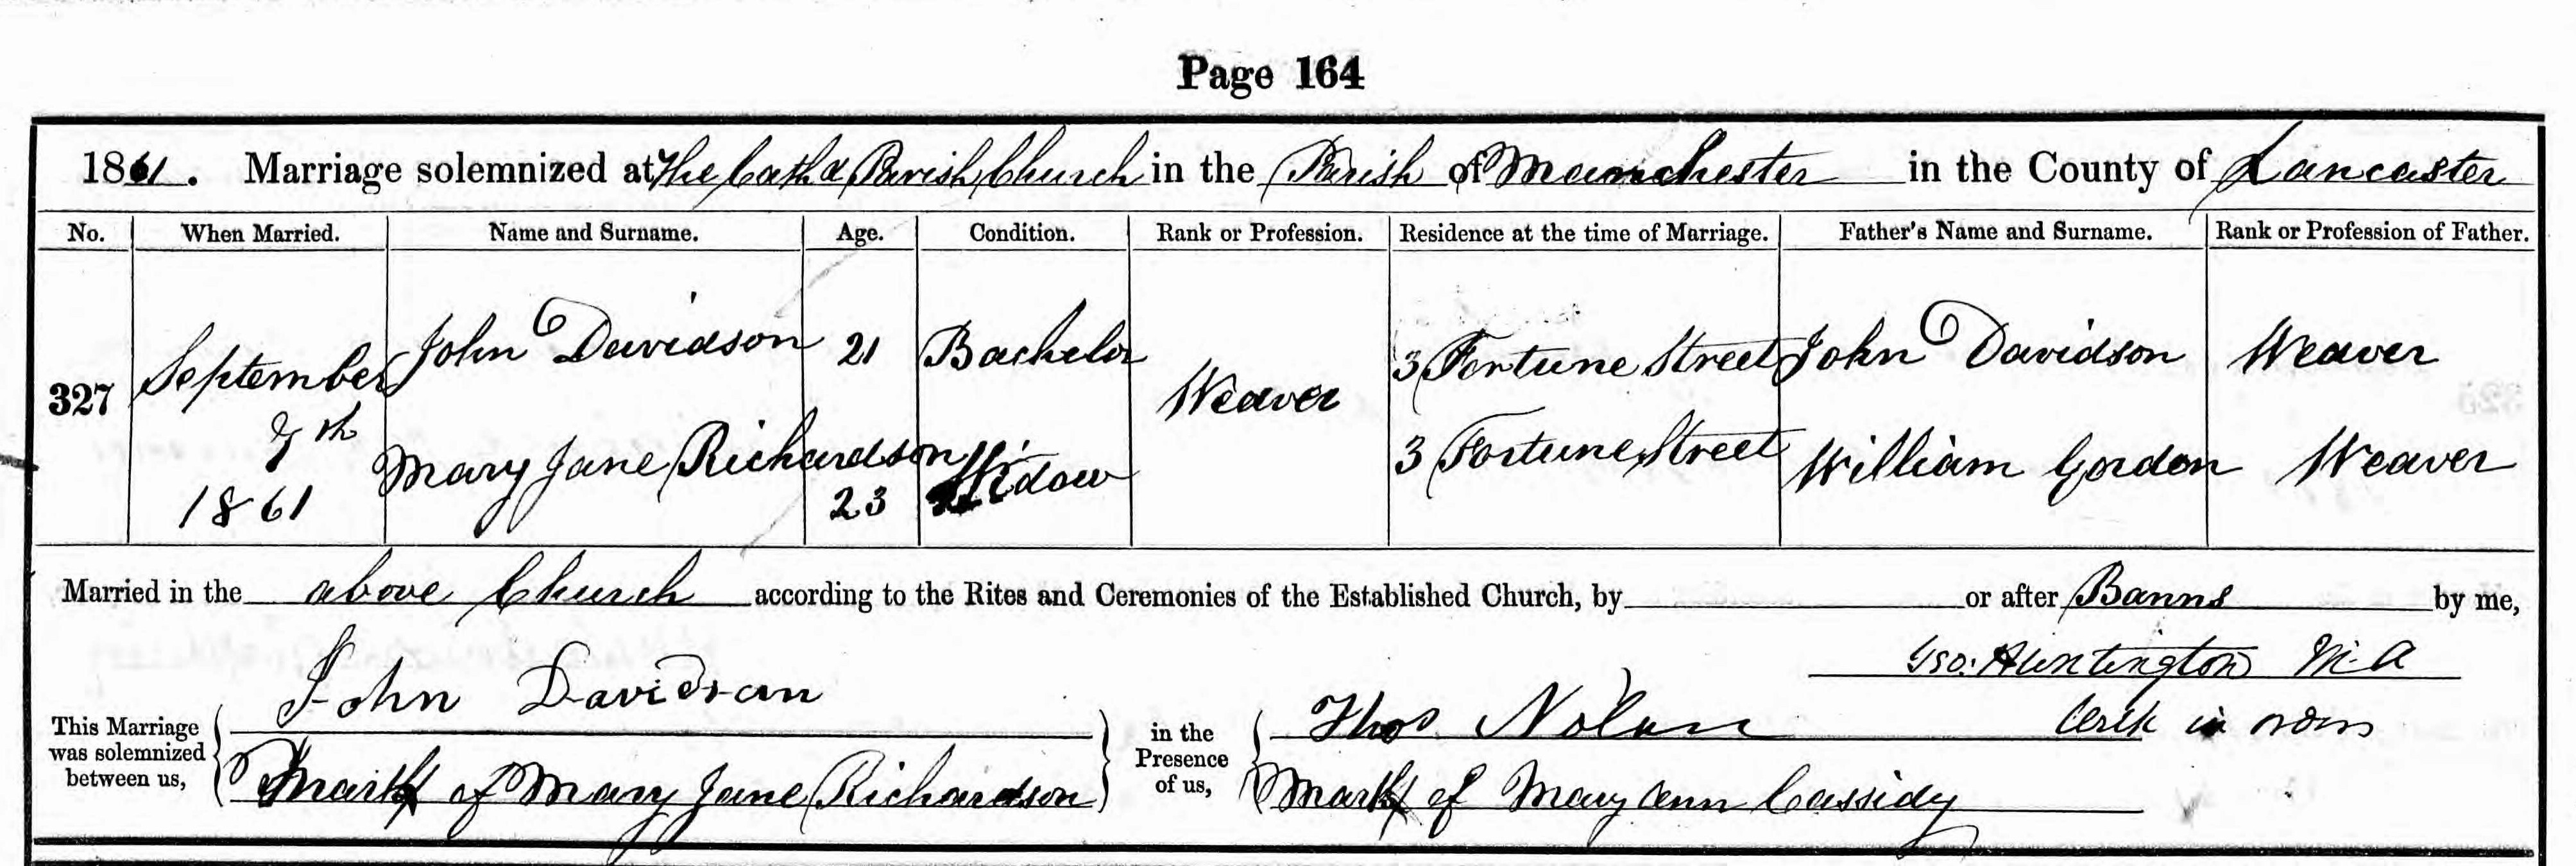 Page 164
1861. Marriage solemnized at The Cath & Parish Church in the Parish of Manchester in the County of Lancaster
No. When Married. Name and Surname. Age. Condition. Rank or Profession. Residence at the time of Marriage. Father's Name and Surname. Rank or Profession of Father.
327 September 7th 1861
John Davidson 21 Bachelor Weaver 3 Fortune Street John Davidson Weaver
Mary Jane Richardson 23 Widow 3 Fortune Street William Gordon Weaver
Married in the above Church according to the Rites and Ceremonies of the Established Church, by or after Banns by me,
Geo: Huntington M.A
Clerk in orders
This Marriage was solemnized between us,
John Davidson
Mark X of Mary Jane Richardson
in the Presence of us,
Thos Nolan
Mark X of Mary Ann Cassidy